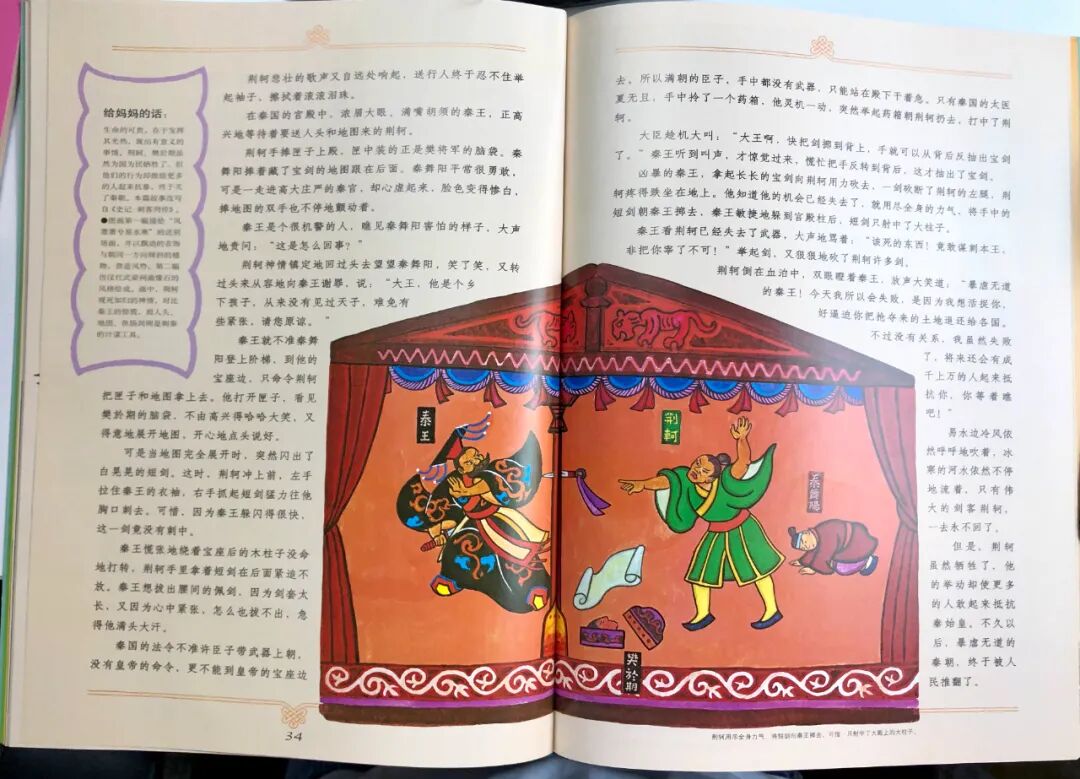 给妈妈的话:
生命的可贵，在于发挥
其光热，做出有意义的
事情。荆轲、樊於期虽
然为国为民牺牲了，但
他们的行为却激起更多
的人起来抗暴，终于灭
了秦朝。本篇故事选可
自《史记·刺客列传》。
荆轲悲壮的歌声又自远处响起，送行人终于忍不住举
起袖子，擦拭着滚滚泪珠。
在秦国的宫殿中，浓眉大眼、满嘴胡须的秦王，正高
兴地等待着要送人头和地图来的荆轲。
荆轲手捧匣子上殿，匣中装的正是樊将军的脑袋。秦
舞阳捧着藏了宝剑的地图跟在后面。秦舞阳平常很勇敢，
可是一走进高大庄严的秦宫，却心虚起来，脸色变得惨白，
捧地图的双手也不停地颤动着。
秦王是个很机警的人，瞧见秦舞阳害怕的样子，大声
地责问：“这是怎么回事？”
荆轲神情镇定地回过头去望望秦舞阳，笑了笑，又转
过头来从容地向秦王谢罪，说：“大王，他是个乡
下孩子，从来没有见过天子，难免有
些紧张，请您原谅。”
秦王就不准秦舞
阳登上阶梯，到他的
宝座边，只命令荆轲
把匣子和地图拿上去。他打开匣子，看见
樊於期的脑袋，不由高兴得哈哈大笑，又
得意地展开地图，开心地点头说好。
可是当地图完全展开时，突然闪出了
白晃晃的短剑。这时，荆轲冲上前，左手
拉住秦王的衣袖，右手抓起短剑猛力往他
胸口刺去。可惜，因为秦王躲闪得很快，
这一剑竟没有刺中。
秦王慌张地绕着宝座后的木柱子没命
地打转，荆轲手里拿着短剑在后面紧追不
放。秦王想拔出腰间的佩剑，因为剑套太
长，又因为心中紧张，怎么也拔不出，急
得他满头大汗。
秦国的法令不准许臣子带武器上朝，
没有皇帝的命令，更不能到皇帝的宝座边
34
去。所以满朝的臣子，手中都没有武器，只能站在殿下干着急。只有秦国的太医
夏无且，手中拎了一个药箱，他灵机一动，突然举起药箱朝荆轲扔去，打中了荆
轲。
大臣趁机大叫：“大王啊，快把剑挪到背上，手就可以从背后反抽出宝剑
了。”秦王听到叫声，才惊觉过来，慌忙把手反转到背后，这才抽出了宝剑。
凶暴的秦王，拿起长长的宝剑向荆轲用力吹去，一剑砍断了荆轲的左腿，荆
轲疼得跌坐在地上。他知道他的机会已经失去了，就用尽全身的力气，将手中的
短剑朝秦王掷去，秦王敏捷地躲到宫殿柱后，短剑只射中了大柱子。
秦王看荆轲已经失去了武器，大声地骂着：“该死的东西！竟敢谋刺本王，
非把你宰了不可！”举起剑，又很很地砍了荆轲许多剑。
荆轲倒在血泊中，双眼瞪着秦王，放声大笑道：“暴虐无道
的秦王！今天我所以会失败，是因为我想活捉你，
好逼迫你把抢夺来的土地退还给各国。
不过没有关系，我虽然失败
了，将来还会有成
千上万的人起来抵
抗你，你等着瞧
吧！”
易水边冷风依
然呼呼地吹着，冰
寒的河水依然不停
地流着，只有伟
大的剑客荆轲，
一去永不回了。
但是，荆轲
虽然牺牲了，他
的举动却使更多
的人敢起来抵抗
秦始皇。不久以
后，暴虐无道的
秦朝，终于被人
民推翻了。
秦王
荆轲
秦舞陽
樊於期
荆轲用尽全身力气，将短剑向秦王掷去，可惜，只射中了大殿上的大柱子。